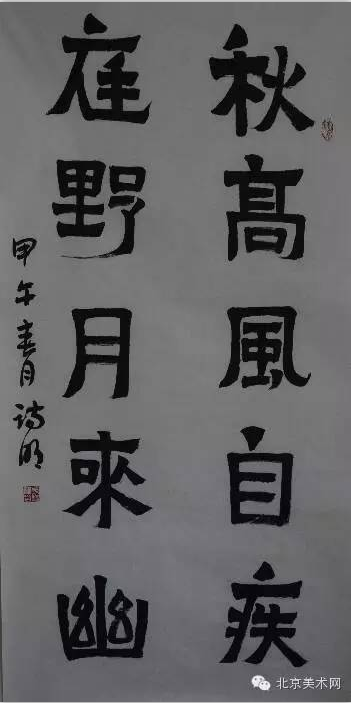 秋高風自疾
庭野月來幽
甲午春月诗明
北京美术网